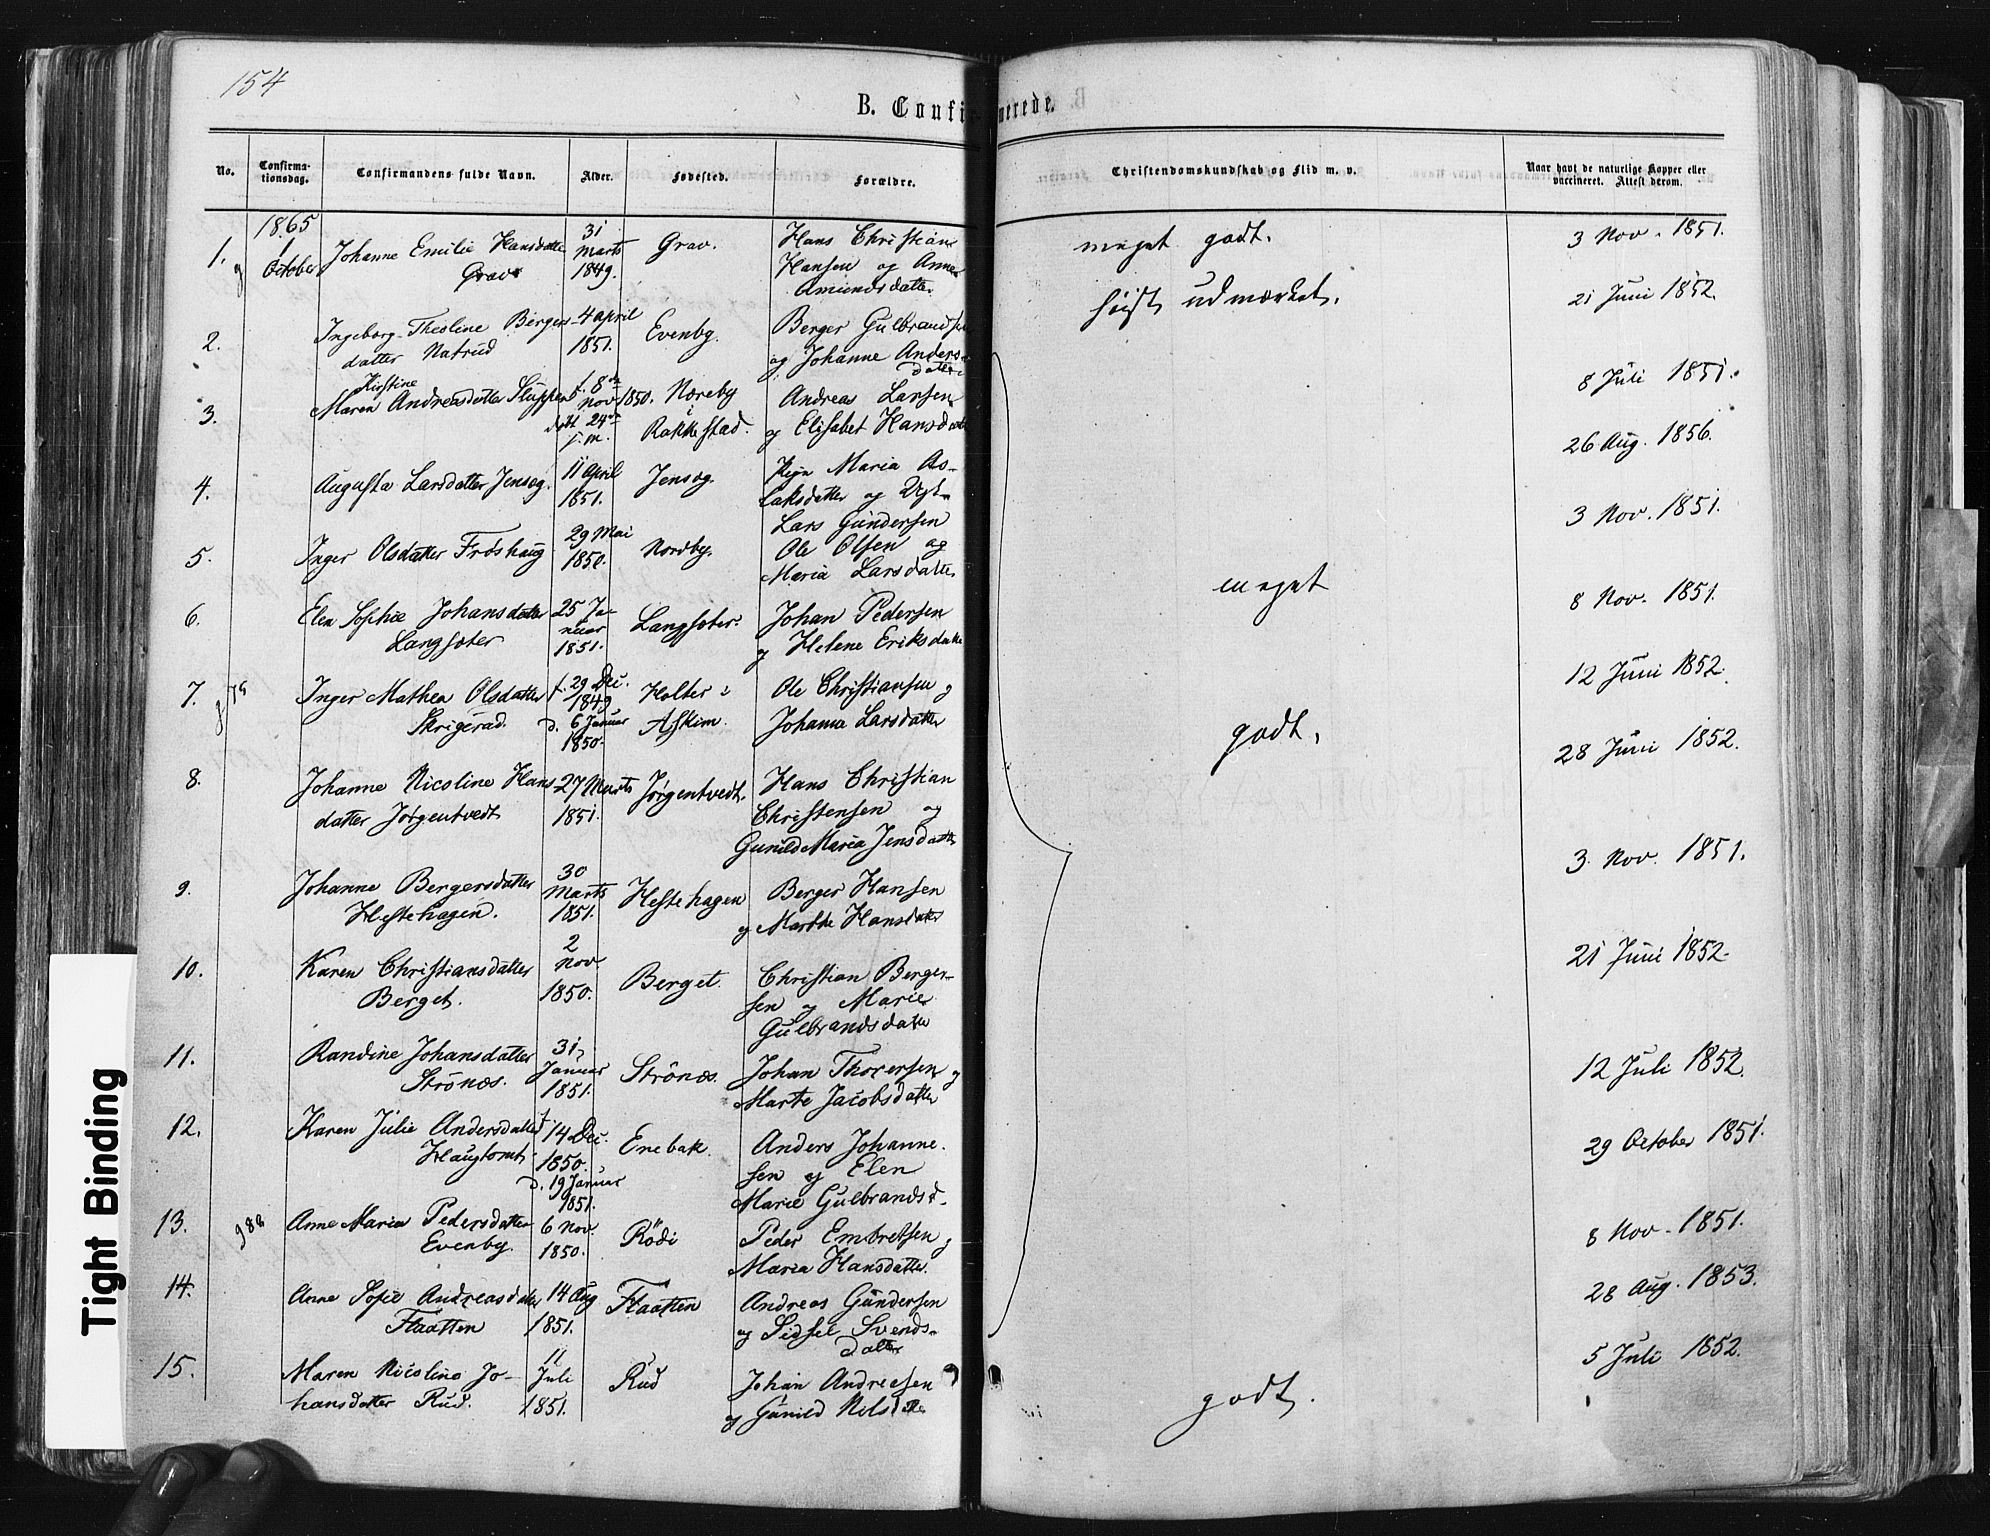 154
B. Confi merede.
No.
Confirma-
tionsdag.
Confirmandens fulde Navn.
Alder.
Fødested.
Forældre.
Christendomskundskab og Flid m. v.
Naar havt de naturlige Kopper eller
vaccineret. Attest derom.
1865
1. 1 October Johanne Emilie Hansdatter
Grav
31
Marts
1849.
Grav.
Hans Christian
Hansen og Anne
Amundsdatter
meget godt.
3 Nov. 1851.
2. Ingeborg Theoline Bergers-
datter Natrud
4 april
1851.
Evenby.
Berger Gulbrandsen
og Johanne Anders-
datter
høist udmærket.
21 Juni 1852.
3. Kirstine
Maren Andreasdatter Sluppen
f. 8de
nov 1850.
døbt 24de
s. m.
Næreby
i
Rakkestad.
Andreas Larsen
og Elisabet Hansdatter
8 Juli 1851.
4. Augusta Larsdatter Jensøg.
11 april
1851.
Jensøg.
Pige Maria As-
laksdatter og Ugk.
Lars Gundersen
26 Aug. 1856.
5. Inger Olsdatter Frøshaug
29 Mai
1850.
Nordby.
Ole Olsen og
Maria Larsdatter
3 Nov. 1851.
6. Elen Sophie Johansdatter
Langsæter
25 Ja-
nuar
1851.
Langsæter.
Johan Pedersen
og Helene Eriksdatter
meget
8 Nov. 1851.
7. Inger Mathea Olsdatter
Skrigerud.
f. 29 Dec.
1849
d. 6 Januar
1850.
Holter i
Askim.
Ole Christiansen og
Johanna Larsdatter
godt.
12 Juni 1852.
8. Johanne Nicoline Hans-
datter Jørgentvedt
27 Marts
1851.
Jørgentvedt.
Hans Christian
Christensen og
Gunild Maria Jensdatter
28 Juni 1852.
9. Johanne Bergersdatter
Hestehagen.
30
Marts
1851.
Hestehagen
Berger Hansen
og Marthe Hansdatter
3 Nov. 1851.
10. Karen Christiansdatter
Berget.
2
nov.
1850.
Berget.
Christian Berger-
sen og Marie
Gulbrandsdatter
21 Juni 1852.
11. Randine Johansdatter
Strønæs.
31
Januar
1851.
Strønæs.
Johan Thorersen og
Marte Jacobsdatter
12 Juli 1852.
12. Karen Julie Andersdatter
Haugtomt
f.
14 Dec.
1850.
d. 19 Januar
1851.
Enebak.
Anders Johanne-
sen og Elen
Marie Gulbrandsd.
29 October 1851.
13. Anne Maria Pedersdatter
Evenby.
6 nov.
1850.
Rödi
Peder Embretsen og
Maria Hansdatter.
8 Nov. 1851.
14. Anne Sofie Andreasdatter
Flaatten
14 Aug
1851.
Flaatten
Andreas Gundersen
og Sidsel Svends-
datter
28 Aug. 1853.
15. Maren Nicoline Jo-
hansdatter Rud.
11
Juli
1851.
Rud
Johan Andreasen
og Gunild Nilsdatter
godt.
5 Juli 1852.
Tight Binding